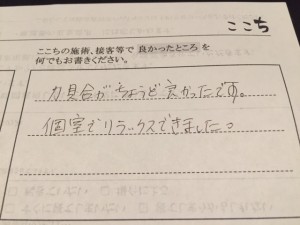 ここち
ここちの施術、接客等で良かったところを
何でもお書きください。
力具合がちょうど良かったです。
個室でリラックスできました